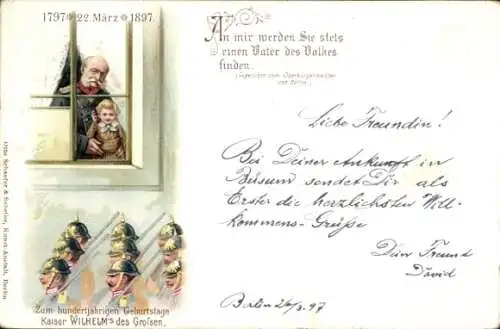 1797 22. März 1897.
An mir werden Sie stets
einen Vater des Volkes
finden.
Liebe Freundin!
Bei Deiner Ankunft in
Büsum sendet Dir als
Erster die herzlichsten Will-
kommens-Grüße
Dein Freund
David
Berlin 26/3.97
Zum hundertjährigen Geburtstage
Kaiser WILHELM'S des Großen.
Otto Schaefer & Scheibe, Kunst-Anstalt, Berlin